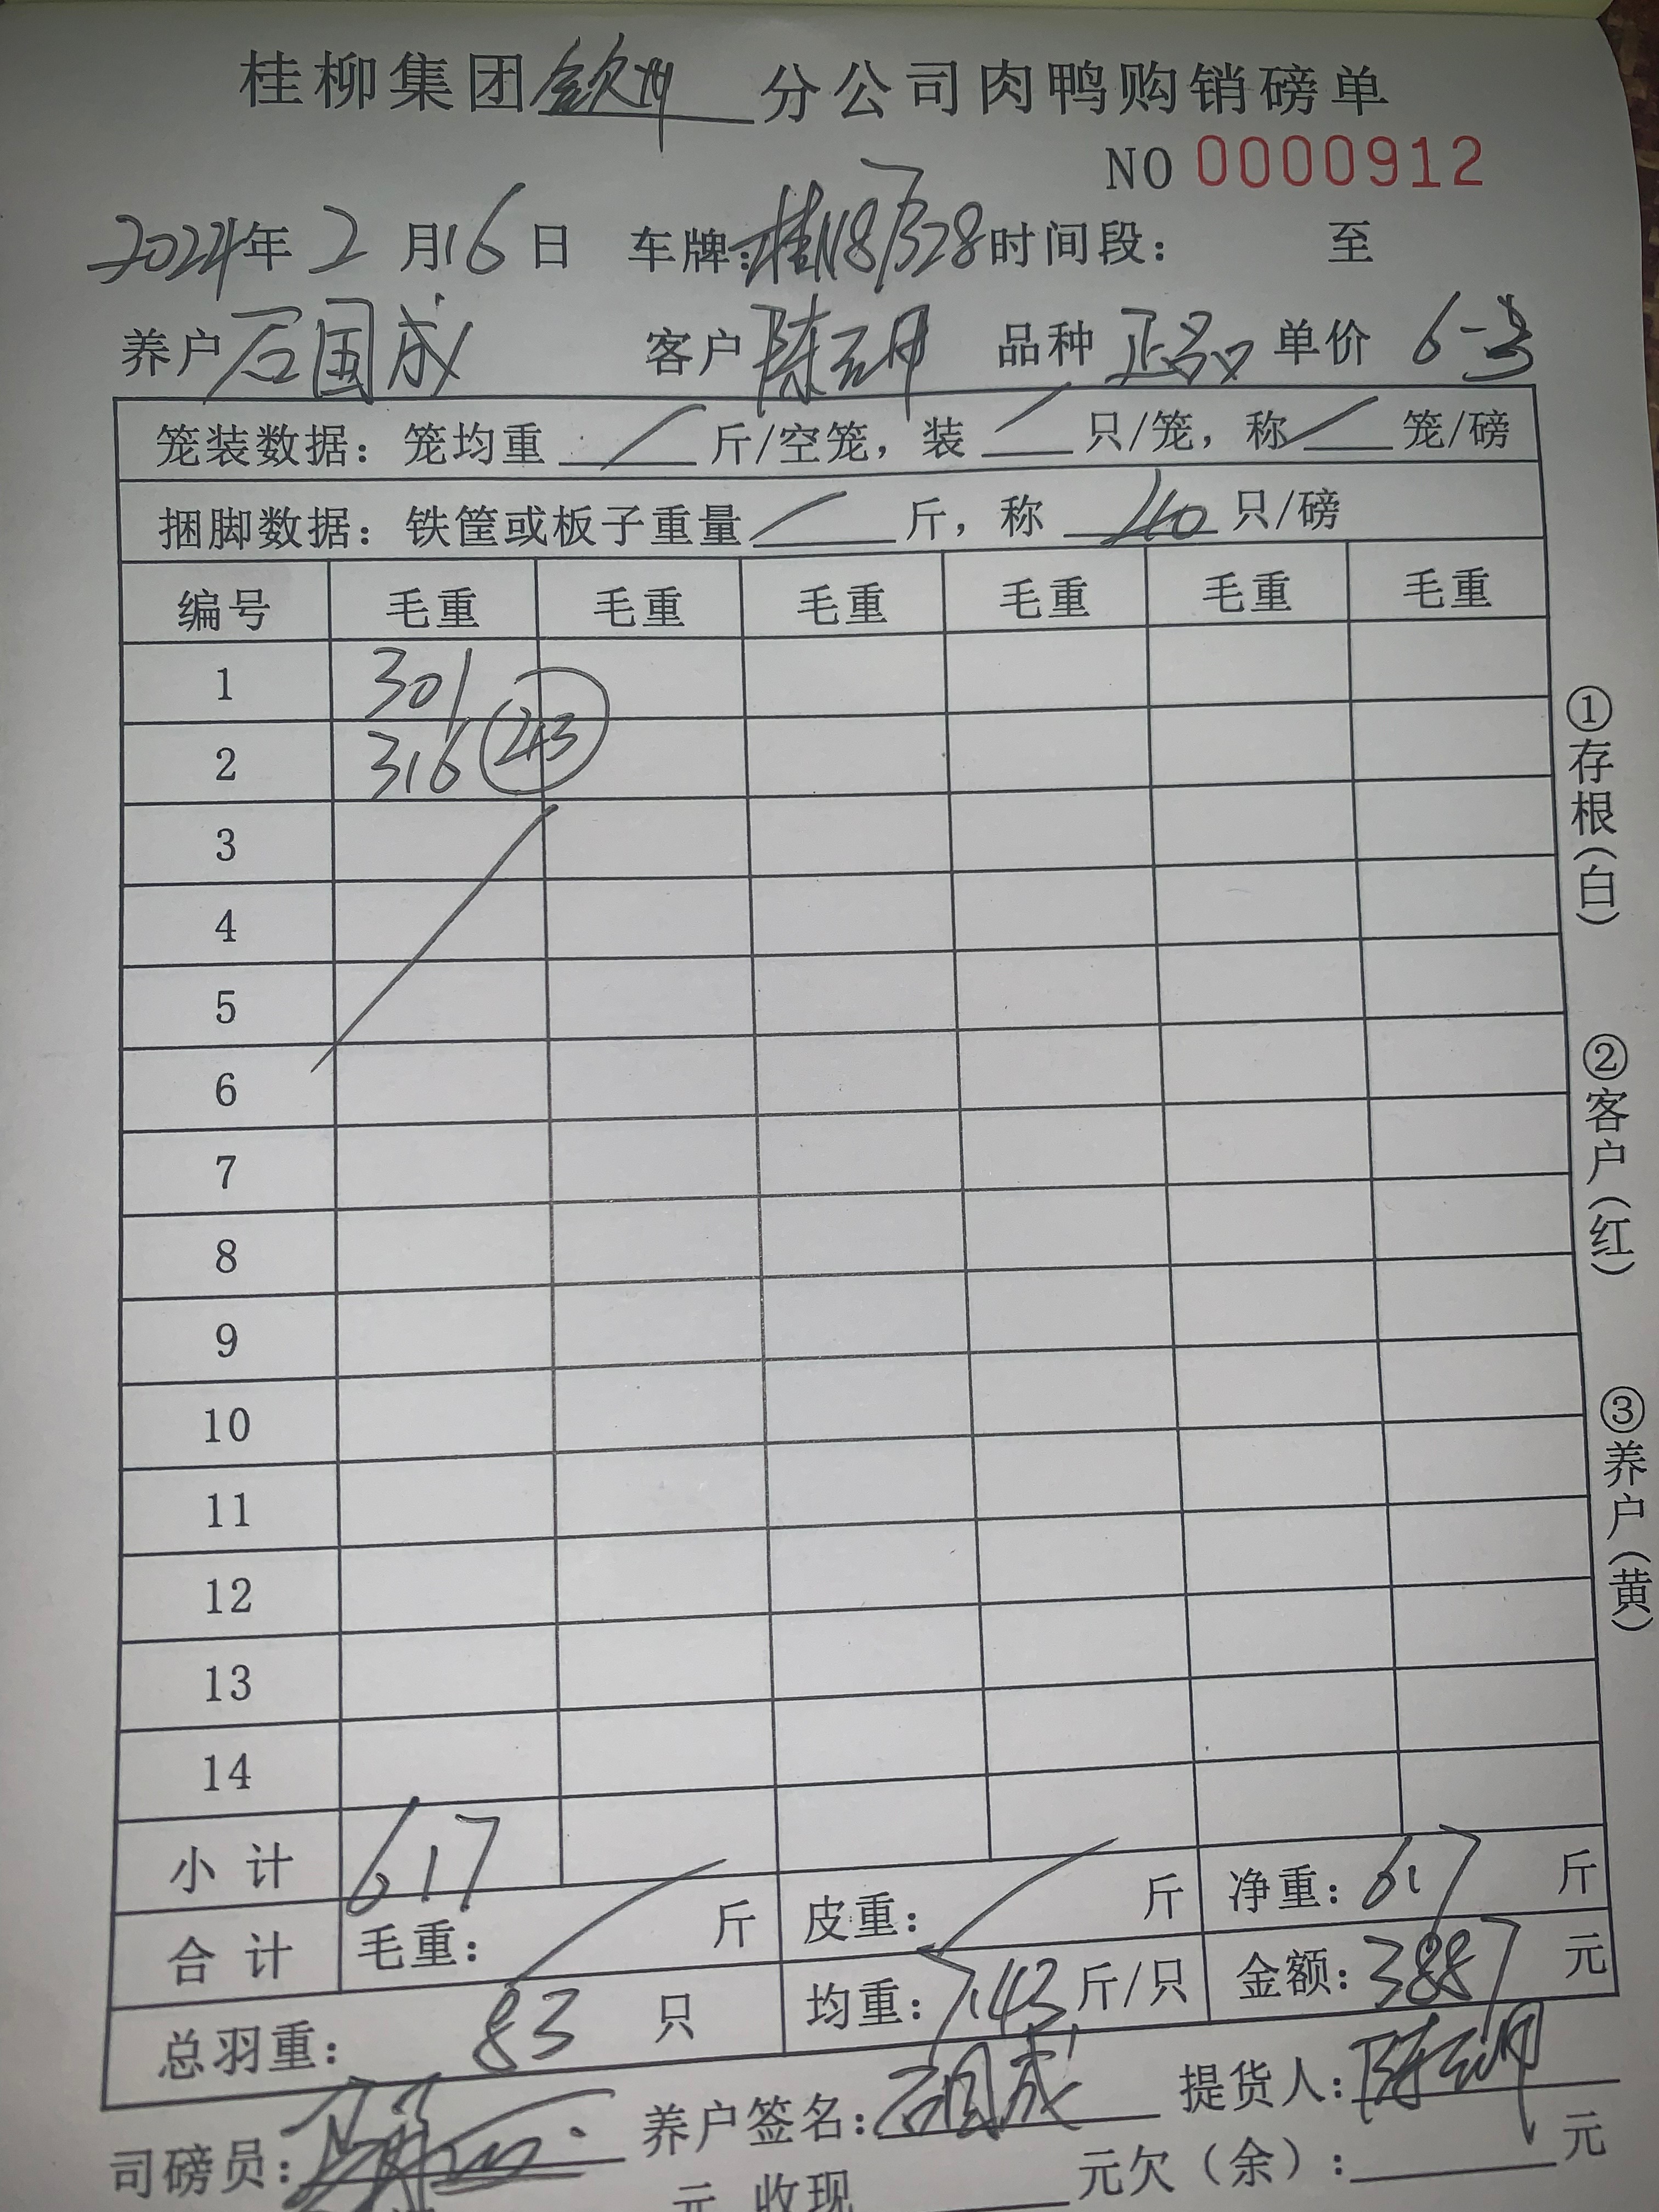 桂柳集团钦州分公司肉鸭购销磅单
NO 0000912
2024年 2 月 16 日 车牌：桂N87328 时间段： 至
养户 石国成 客户 陈 品种 正品 单价 6-3
笼装数据：笼均重 / 斤/空笼，装 / 只/笼，称 / 笼/磅
捆脚数据：铁筐或板子重量 / 斤，称 40 只/磅
编号 毛重 毛重 毛重 毛重 毛重 毛重
1 301
2 316 43
3
4
5
6
7
8
9
10
11
12
13
14
小计 617
合计 毛重： / 斤 皮重： / 斤 净重：617 斤
总羽重： 83 只 均重：7.43 斤/只 金额：3887 元
司磅员： 养户签名：石国成 提货人：陈
元 收现 元欠（余）： 元
①存根（白）
②客户（红）
③养户（黄）